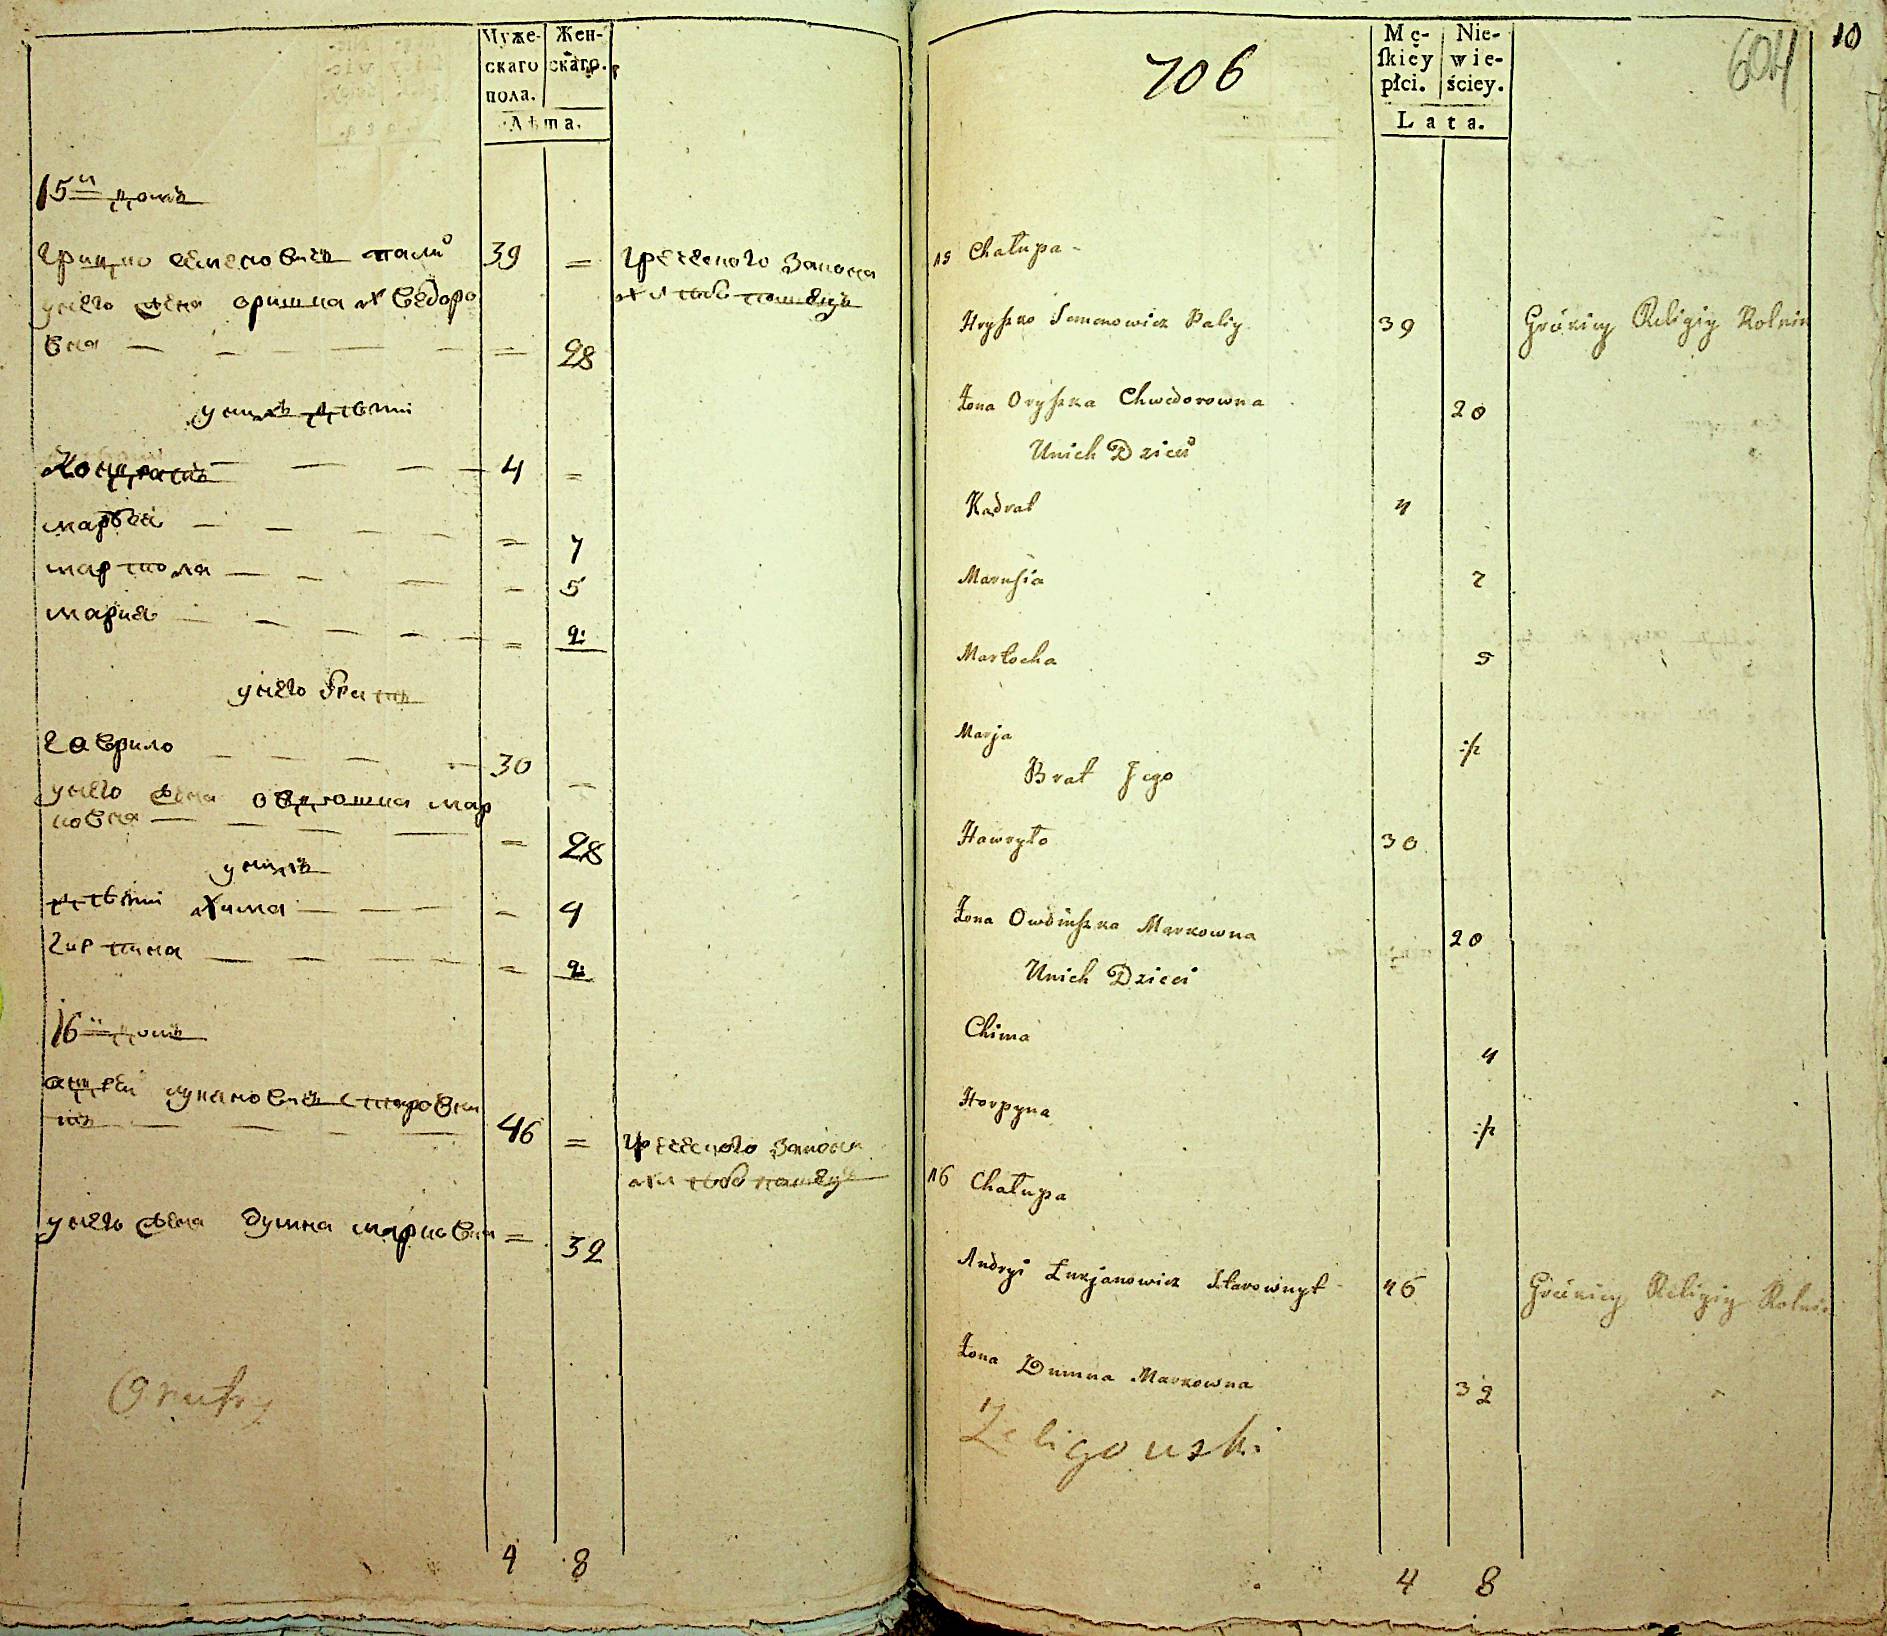 Муже-
скаго
пола.
Жен-
скаго.
Лѣта.
15й домъ
Грицко Семеновичъ Палій 39 =
греческого закона
хлѣбопашецъ
унего жена Оришка Хведоро
вна — — — — — = 28
унихъ дѣти
Кондратъ — — — 4 =
маруся — — — — = 7
мартоха — — — - 5
мария — — — — — = 2:
унего братъ
Гаврило — — — — 30 =
унего жена Овдюшка мар
ковна — — — — = 28
унихъ
дѣти Хима — — — - 4
Гирпина — — — — = 2:
16й домъ
андрей лукяновичъ Старовни
къ — — — — 46 =
греческого закона
хлѣбопашецъ
унего жена Думна марковна = 32
4 8
706
Mę-
skiey
płci.
Nie-
wie-
ściey.
Lata.
604
10
15 Chałupa -
Hryszko Semenowicz Paliy 39 Gréckiey Religiy Rolnik
Żona Oryszka Chwedorowna 28
Unich Dzieci
Kadrat 4
Marusia 7
Martocha 5
Marja :/2
Brat Jego
Hawryło 30
Żona Owdiuszka Markowna 28
Unich Dzieci
Chima 4
Horpyna :/2
16 Chałupa
Andryi Łukjanowicz Starownyk 46 Gréckiey Religiy Rolni
Żona Dumna Markowna 32
Żeligowski
4 8